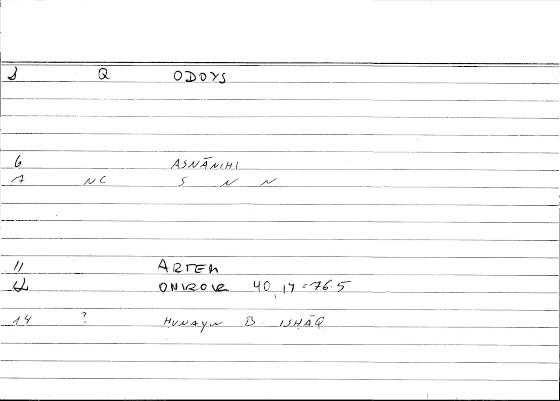 1 Q ODOYS
6 ASNĀNIHI
7 NC S N N
11 ARTEM
12 ONIROCR 40,17=76.5
14 ? HUNAYN B. ISHĀQ